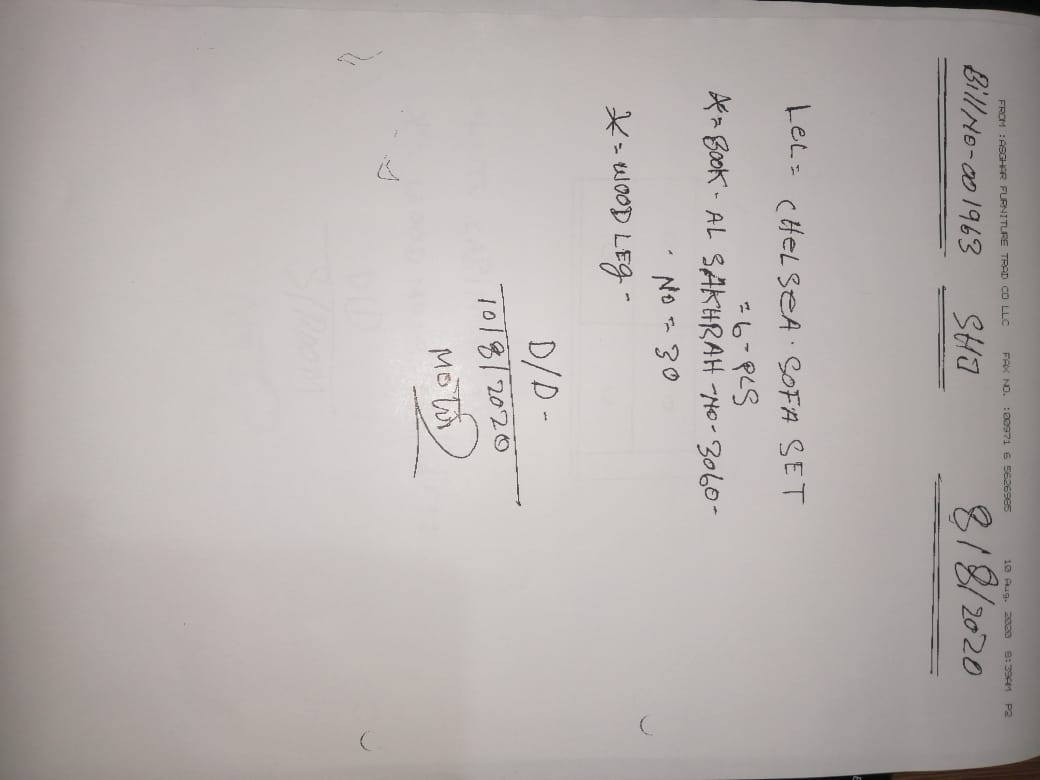 FROM :ASGHAR FURNITURE TRAD CO LLC FAX NO. :00971 6 5626985 10 Aug. 2020 8:39AM P2
Bill No-001963 SHJ 8/8/2020
LCL= CHELSEA. SOFA SET
=6-PCS
*=BOOK- AL SAKHRAH-NO-3060-
. NO=30
*=WOOD LEG-
D/D-
10/8/2020